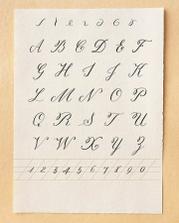 A B C D E F
G H I J K
L M N O P
Q R S T U
V W X Y Z
1 2 3 4 5 6 7 8 9 0